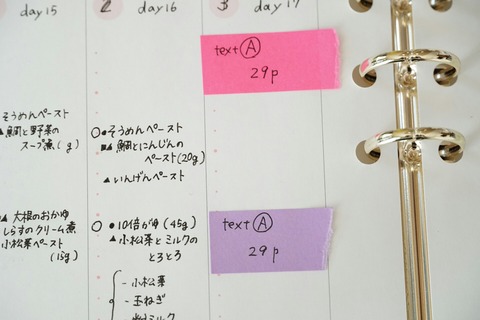 day15
2 day16
3 day17
text Ⓐ
29p
そうめんペースト
▲鯛と野菜の
スープ煮( g)
○●そうめんペースト
■▲鯛とにんじんの
ペースト(20g)
▲いんげんペースト
▲大根のおかゆ
しらすのクリーム煮
小松菜ペースト
(15g)
○ ●10倍がゆ(45g)
▲小松菜とミルクの
とろとろ
- 小松菜
- 玉ねぎ
- 粉ミルク
text Ⓐ
29p